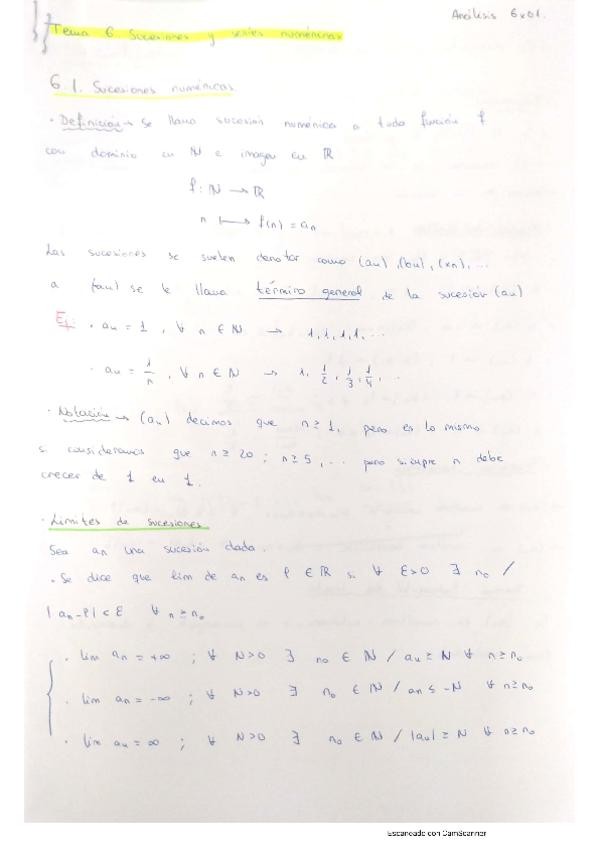 Análisis 6x01.
Tema 6. Sucesiones y series numéricas
6.1. Sucesiones numéricas.
· Definición → Se llama sucesión numérica a toda función f
con dominio en ℕ e imagen en ℝ
f: ℕ → ℝ
n ⟼ f(n) = an
Las sucesiones se suelen denotar como (an), (bn), (xn), ...
a {an} se le llama término general de la sucesión (an)
Ej: · an = 1, ∀ n ∈ ℕ → 1, 1, 1, 1, ...
· an = 1/n, ∀ n ∈ ℕ → 1, 1/2, 1/3, 1/4, ...
· Notación → (an) decimos que n ≥ 1, pero es lo mismo
si consideramos que n ≥ 20; n ≥ 5, ... pero siempre n debe
crecer de 1 en 1.
· Límites de sucesiones
Sea an una sucesión dada.
· Se dice que lim de an es l ∈ ℝ si ∀ ε>0 ∃ n₀ /
|an - l| < ε ∀ n ≥ n₀
· lim an = +∞ ; ∀ N>0 ∃ n₀ ∈ ℕ / an ≥ N ∀ n ≥ n₀
· lim an = -∞ ; ∀ N>0 ∃ n₀ ∈ ℕ / an ≤ -N ∀ n ≥ n₀
· lim an = ∞ ; ∀ N>0 ∃ n₀ ∈ ℕ / |an| ≥ N ∀ n ≥ n₀
Escaneado con CamScanner